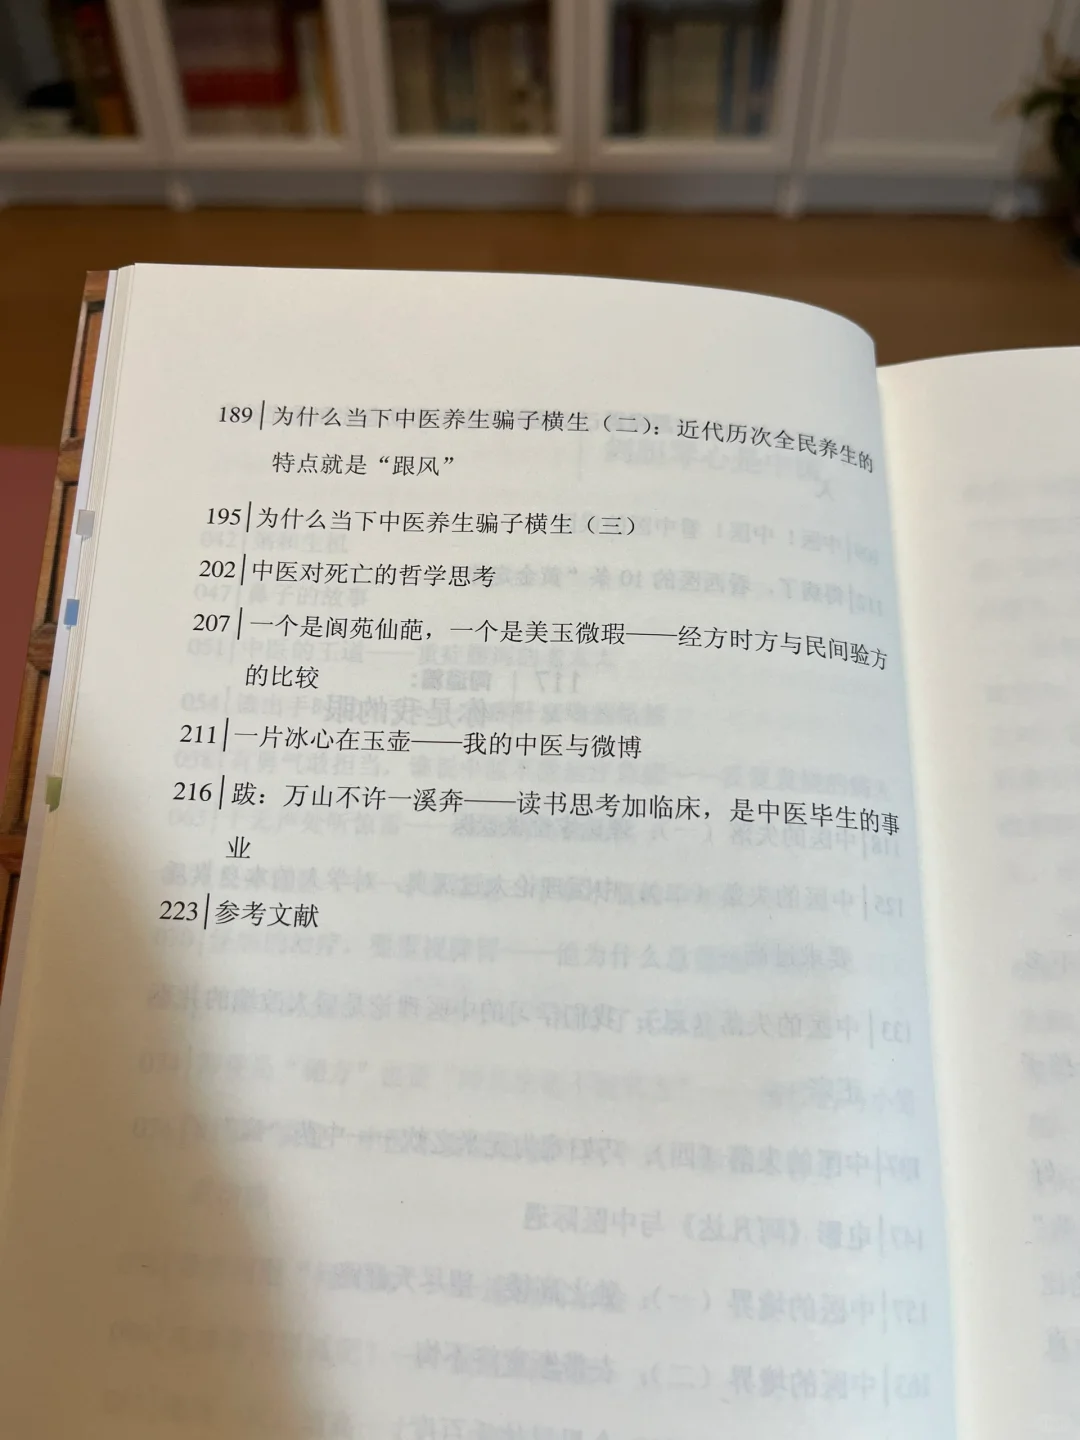 189│为什么当下中医养生骗子横生（二）：近代历次全民养生的
特点就是“跟风”
195│为什么当下中医养生骗子横生（三）
202│中医对死亡的哲学思考
207│一个是阆苑仙葩，一个是美玉微瑕——经方时方与民间验方
的比较
211│一片冰心在玉壶——我的中医与微博
216│跋：万山不许一溪奔——读书思考加临床，是中医毕生的事
业
223│参考文献